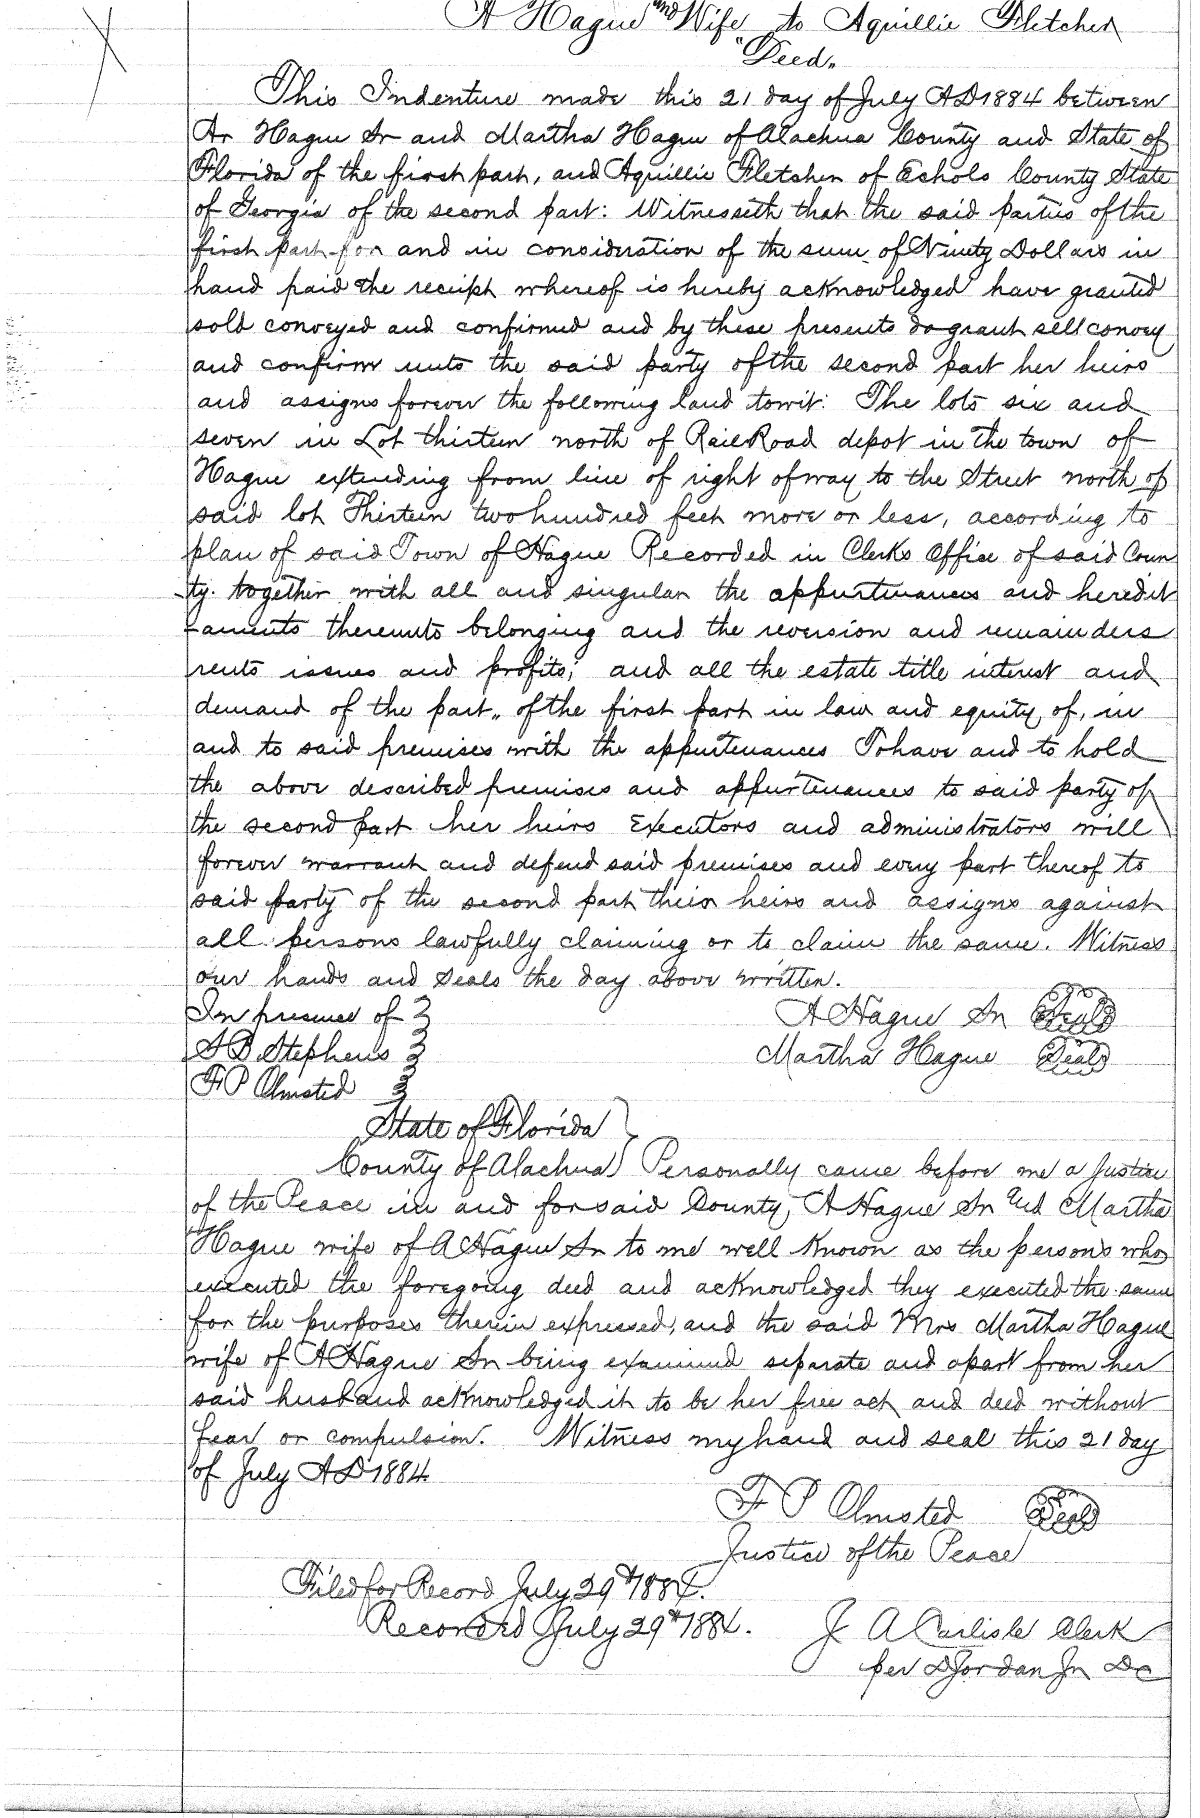 A Hague and Wife to Aquillie Fletcher
"Deed"
This Indenture made this 21 day of July AD 1884 between
Ar Hague Sr and Martha Hague of Alachua County and State of
Florida of the first part, and Aquillie Fletcher of Echols County State
of Georgia of the second part: Witnesseth that the said parties of the
first part for and in consideration of the sum of Ninety Dollars in
hand paid the receipt whereof is hereby acknowledged have granted
sold conveyed and confirmed and by these presents do grant sell convey
and confirm unto the said party of the second part her heirs
and assigns forever the following land towit: The lots six and
seven in Lot thirteen north of Rail Road depot in the town of
Hague extending from line of right of way to the Street north of
said lot Thirteen two hundred feet more or less, according to
plan of said Town of Hague Recorded in Clerks Office of said Coun
ty. together with all and singular the appurtenances and heredit
-aments thereunto belonging and the reversion and remainders
rents issues and profits; and all the estate title interest and
demand of the part" of the first part in law and equity, of, in
and to said premises with the appurtenances To have and to hold
the above described premises and appurtenances to said party of
the second part her heirs Executors and administrators will
forever warrant and defend said premises and every part thereof to
said party of the second part their heirs and assigns against
all persons lawfully claiming or to claim the same. Witness
our hands and Seals the day above written.
In presence of } A Hague Sr Seal
S B Stephens } Martha Hague Seal
F P Olmsted }
State of Florida }
County of Alachua } Personally came before me a Justice
of the Peace in and for said County, A Hague Sr and Martha
Hague wife of A Hague Sr to me well known as the persons who
executed the foregoing deed and acknowledged they executed the same
for the purposes therein expressed, and the said Mrs Martha Hague
wife of A Hague Sr being examined separate and apart from her
said husband acknowledged it to be her free act and deed without
fear or compulsion. Witness my hand and seal this 21 day
of July AD 1884
F P Olmsted Seal
Justice of the Peace
Filed for Record July 29th 1884.
Recorded July 29th 1884. J A Carlisle Clerk
per D Jordan Jr Dc